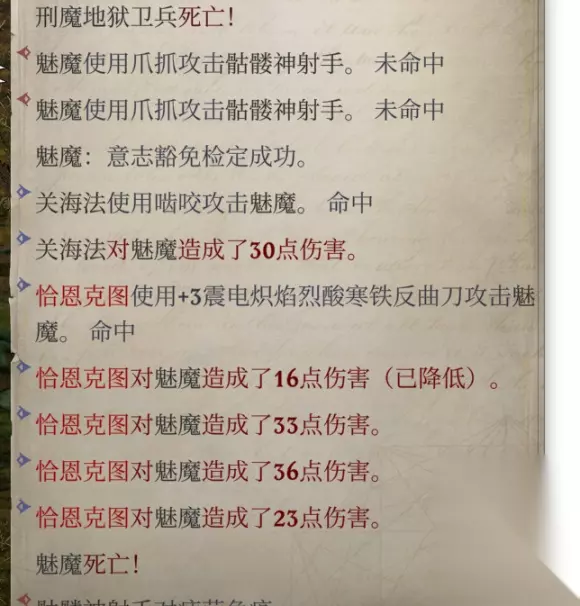 刑魔地狱卫兵死亡！
魅魔使用爪抓攻击骷髅神射手。 未命中
魅魔使用爪抓攻击骷髅神射手。 未命中
魅魔：意志豁免检定成功。
关海法使用啮咬攻击魅魔。 命中
关海法对魅魔造成了30点伤害。
恰恩克图使用+3震电炽焰烈酸寒铁反曲刀攻击魅
魔。 命中
恰恩克图对魅魔造成了16点伤害（已降低）。
恰恩克图对魅魔造成了33点伤害。
恰恩克图对魅魔造成了36点伤害。
恰恩克图对魅魔造成了23点伤害。
魅魔死亡！